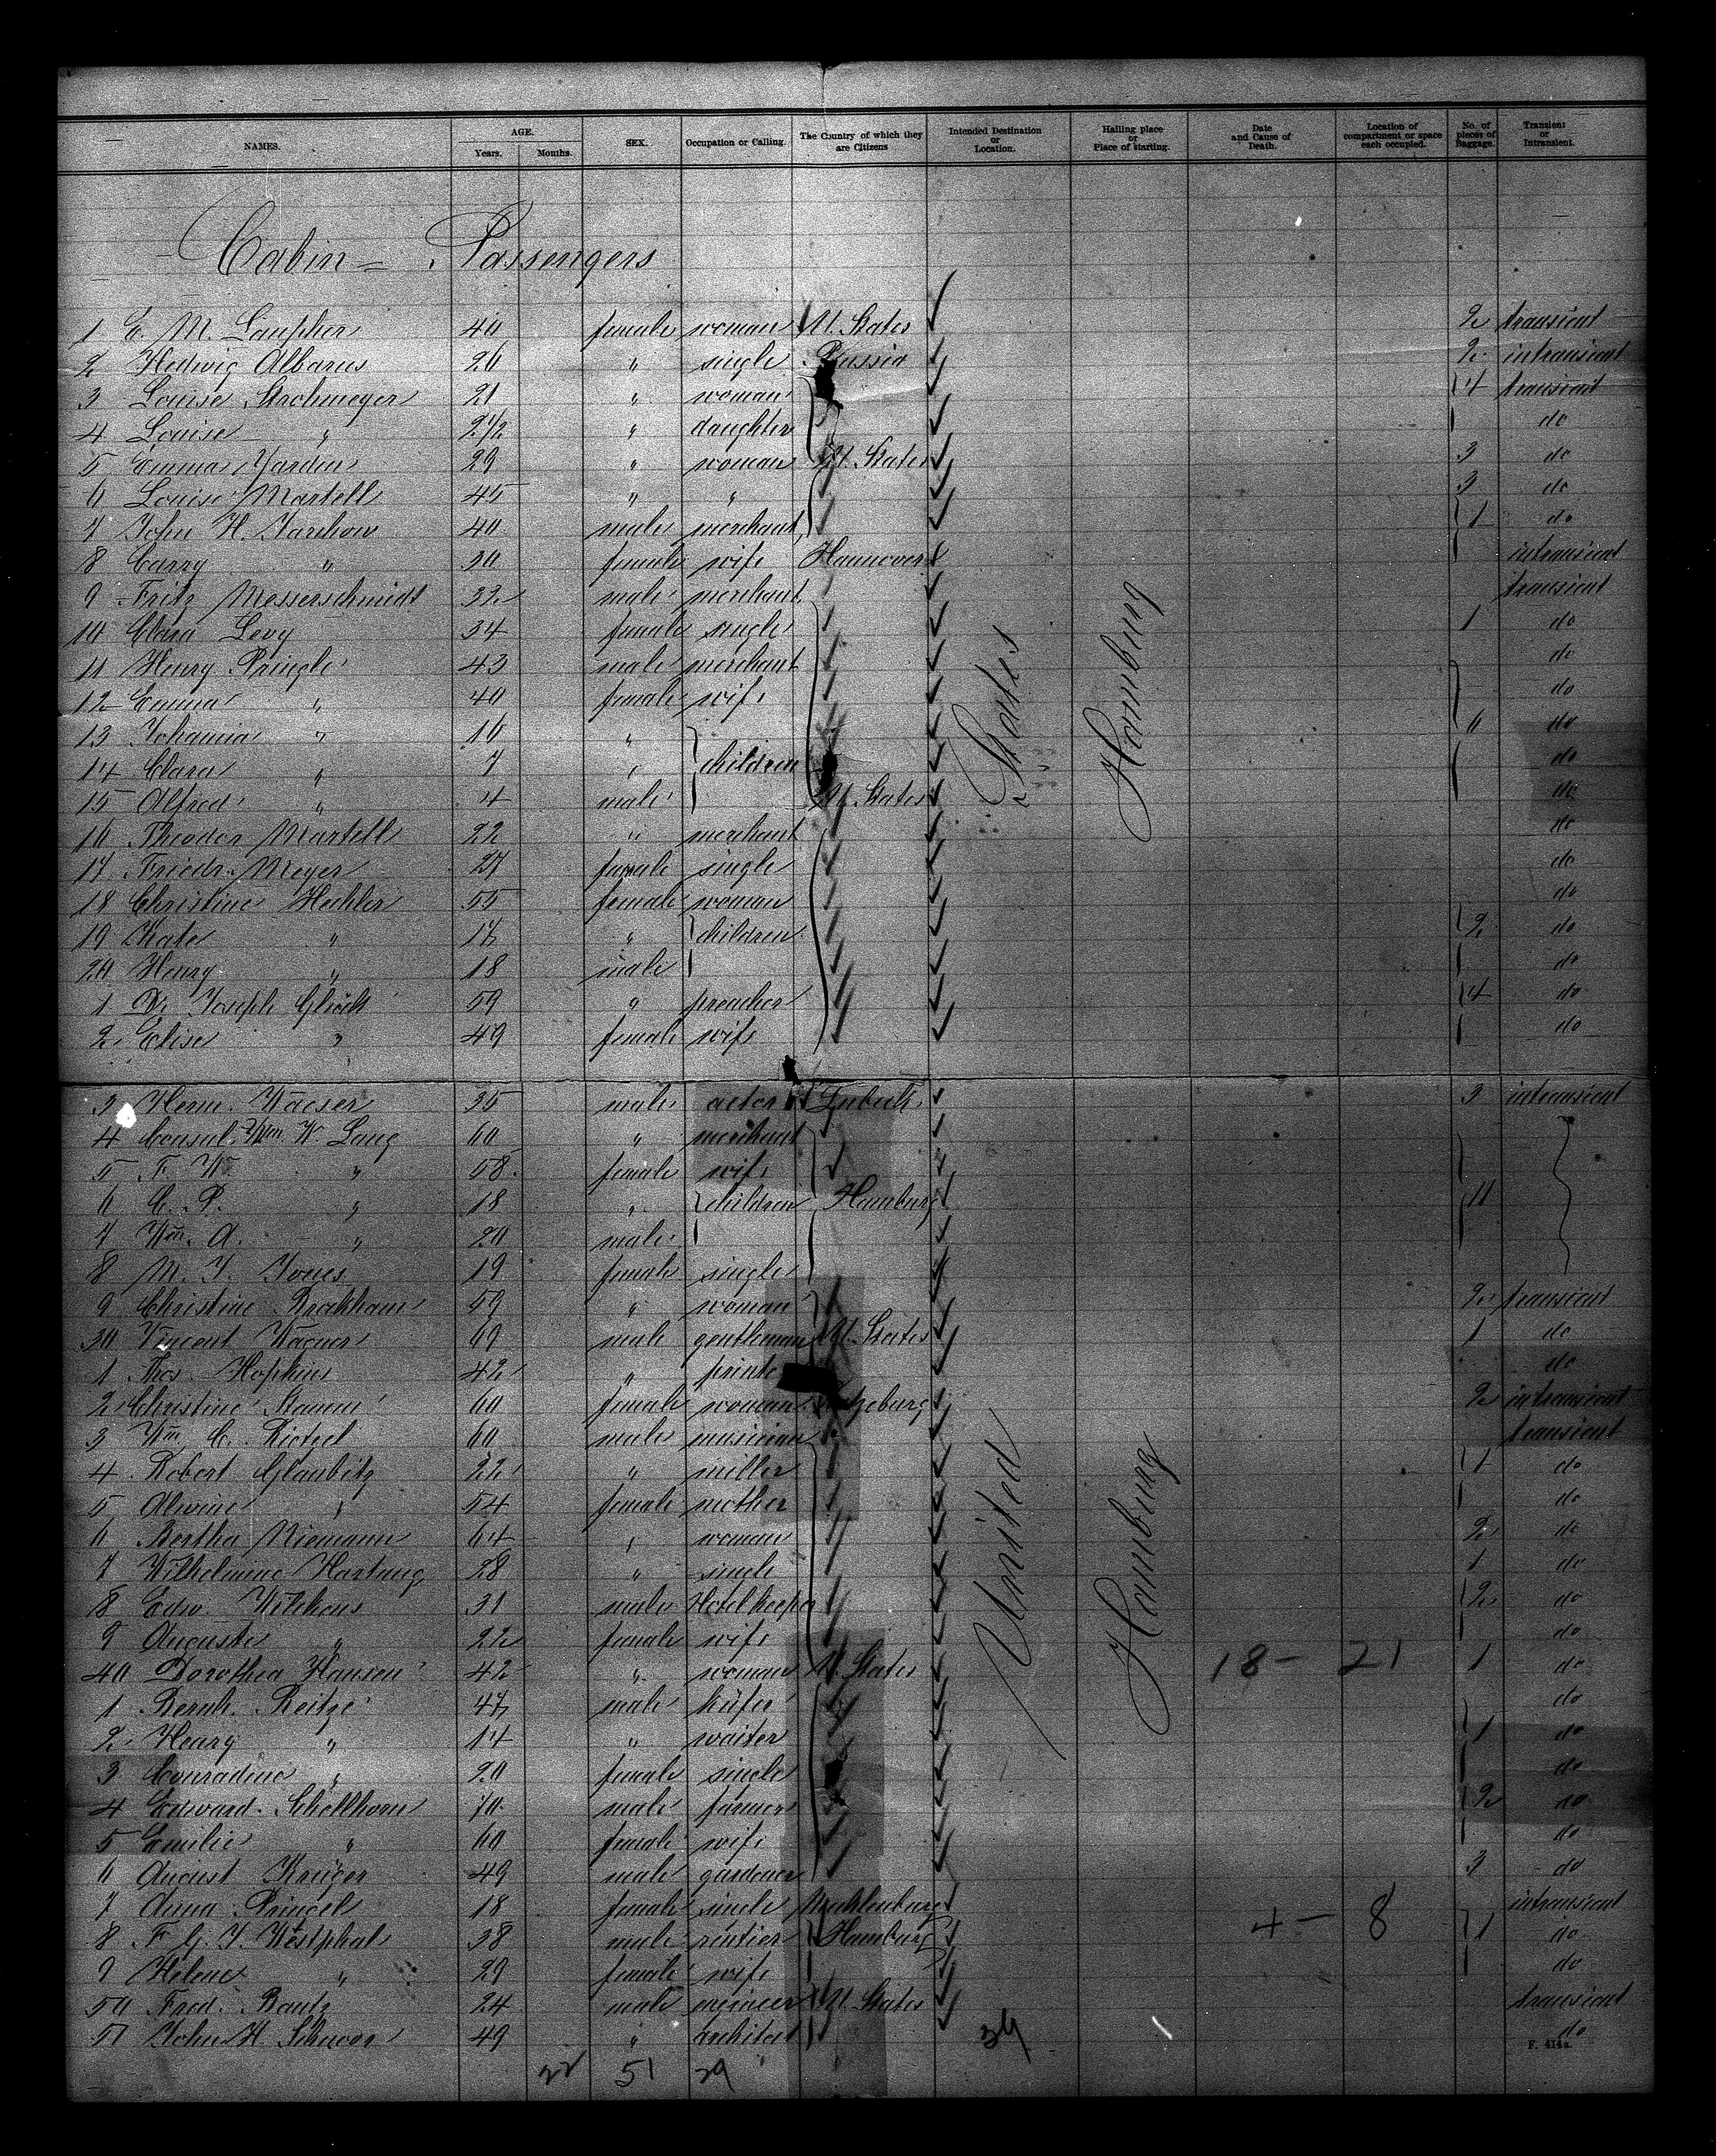 NAMES. AGE. Years. Months. SEX. Occupation or Calling. The Country of which they are Citizens Intended Destination or Location. Hailing place or Place of starting. Date and Cause of Death. Location of compartment or space each occupied. No. of pieces of Baggage. Transient or Intransient.
Cabin = Passengers
1 E. M. 40 female woman U. States 2 transient
2 Hedwig Albarus 26 " single Russia 2 intransient
3 Louise Strohmeyer 21 " woman 4 transient
4 Louise " 2 1/2 " daughter do
5 Emma 29 " woman U. States 3 do
6 Louise Martell 45 " " 3 do
7 John H. Jarchow 40 male merchant 1 do
8 Carry " 30 female wife Hannover intransient
9 Fritz Messerschmidt 32 male merchant transient
10 Clara Levy 34 female single 1 do
11 Henry Pringle 43 male merchant do
12 Emma " 40 female wife do
13 Johanna " 16 " do
14 Clara " 7 " children do
15 Alfred " 4 male U. States do
16 Theodor Martell 22 " merchant do
17 Friedr. Meyer 27 female single do
18 Christine Hechler 55 female woman do
19 Kate " 17 " children 2 do
20 Henry " 18 male do
1 Dr. Joseph Glück 59 " preacher 4 do
2 Elise " 49 female wife do
3 Herm. 35 male actor Lubeck 3 intransient
4 Consul Wm. W. Lang 60 " merchant
5 F. W. " 58 female wife
6 C. P. " 18 " children Hamburg 11
7 Wm. A. " 20 male
8 M. J. Jones 19 female single
9 Christine 59 " woman 2 transient
30 Vincent Wagner 69 male gentleman U. States 1 do
1 Thos. Hopkins 42 " do
2 Christine Stamm 60 female woman 2 intransient
3 Wm. C. Rietzel 60 male musician transient
4 Robert Glaubitz 22 " miller 1 do
5 Alwine " 54 female mother do
6 Bertha Niemann 64 " woman 2 do
7 Wilhelmine Hartung 28 " single 1 do
8 Edw. Wilckens 31 male Hotelkeeper 2 do
9 Auguste " 22 female wife do
40 Dorothea Hansen 42 " woman U. States 18 - 21 1 do
1 Bernh. Reitze 47 male küfer do
2 Henry " 14 " waiter 1 do
3 Conradine " 20 female single do
4 Edward Schellhorn 70 male farmer 2 do
5 Emilie " 60 female wife do
6 August Krüger 49 male gardener 3 do
7 Anna Pringel 18 female single Mecklenburg intransient
8 F. G. J. Westphal 38 male rentier Hamburg 4 - 8 1 do
9 Helene " 29 female wife do
50 Fred. Bautz 24 male engineer U. States transient
51 John H. 49 " architect do
States
Hamburg
United
Hamburg
F. 414a.
22 51 29 39